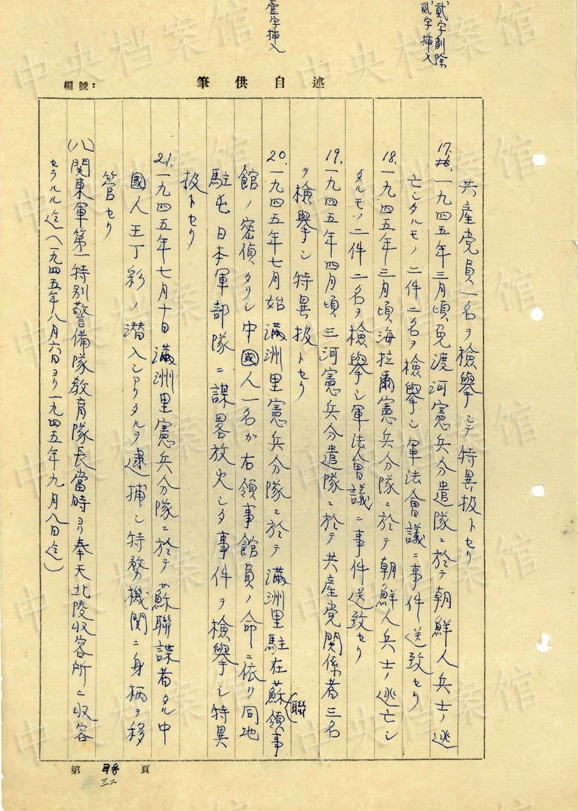 貳字削除
貳字挿入
壹字挿入
述自供筆
編號:
共産党員一名ヲ檢擧シテ特異扱トセリ
17. 一九四五年三月頃免渡河憲兵分遣隊ニ於テ朝鮮人兵士ノ逃
亡シタルモノ二件二名ヲ檢擧シ軍法會議ニ事件送致セリ
18. 一九四五年三月頃海拉爾憲兵分隊ニ於テ朝鮮人兵士ノ逃亡シ
タルモノ二件二名ヲ檢擧シ軍法會議ニ事件送致セリ
19. 一九四五年四月頃三河憲兵分遣隊ニ於テ共産党関係者三名
ヲ檢擧シ特異扱トセリ
20. 一九四五年七月始滿洲里憲兵分隊ニ於テ滿洲里駐在蘇聯領事
館ノ密偵タリシ中國人一名カ右領事館員ノ命ニ依リ同地
駐屯日本軍部隊ニ謀畧放火シタ事件ヲ檢擧シ特異
扱トセリ
21. 一九四五年七月十日滿洲里憲兵分隊ニ於テ蘇聯諜者タル中
國人王丁彩ノ潜入シアリタルヲ逮捕シ特務機関ニ身柄ヲ移
管セリ
(八)関東軍第一特別警備隊教育隊長當時ヨリ奉天北陵収容所ニ収容
セラルル迄(一九四五年八月六日ヨリ一九四五年九月八日迄)
第 頁
中央档案馆